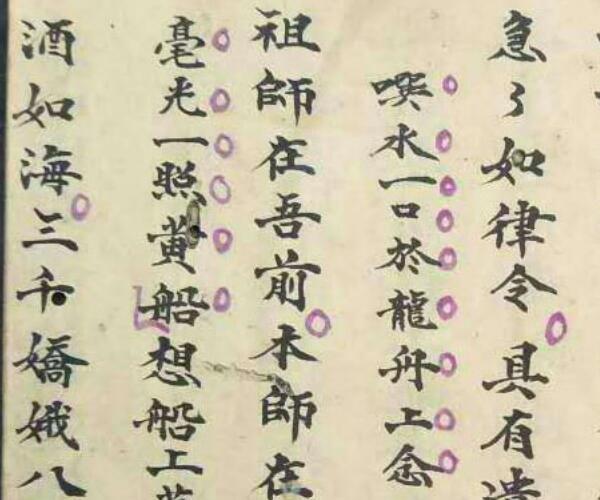 急〻如律令具有
噀水一口於龍舟上念
祖師在吾前本師在
毫光一照黄船想船上
酒如海三千嬌娥八